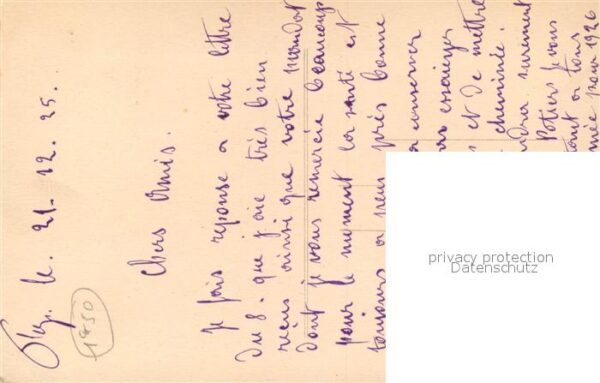 le. 21. 12. 25.
Chers Amis.
Je fais réponse a votre lettre
du 8. que j'aie très bien
reçus ainsi que votre mandat
dont je vous remercie beaucoup
pour le moment la santé est
toujours a peu près bonne
conserver
essaiyer
et de mettre
cheminée.
surement
Potiers je vous
a tous
pour 1926
1830
privacy protection
Datenschutz